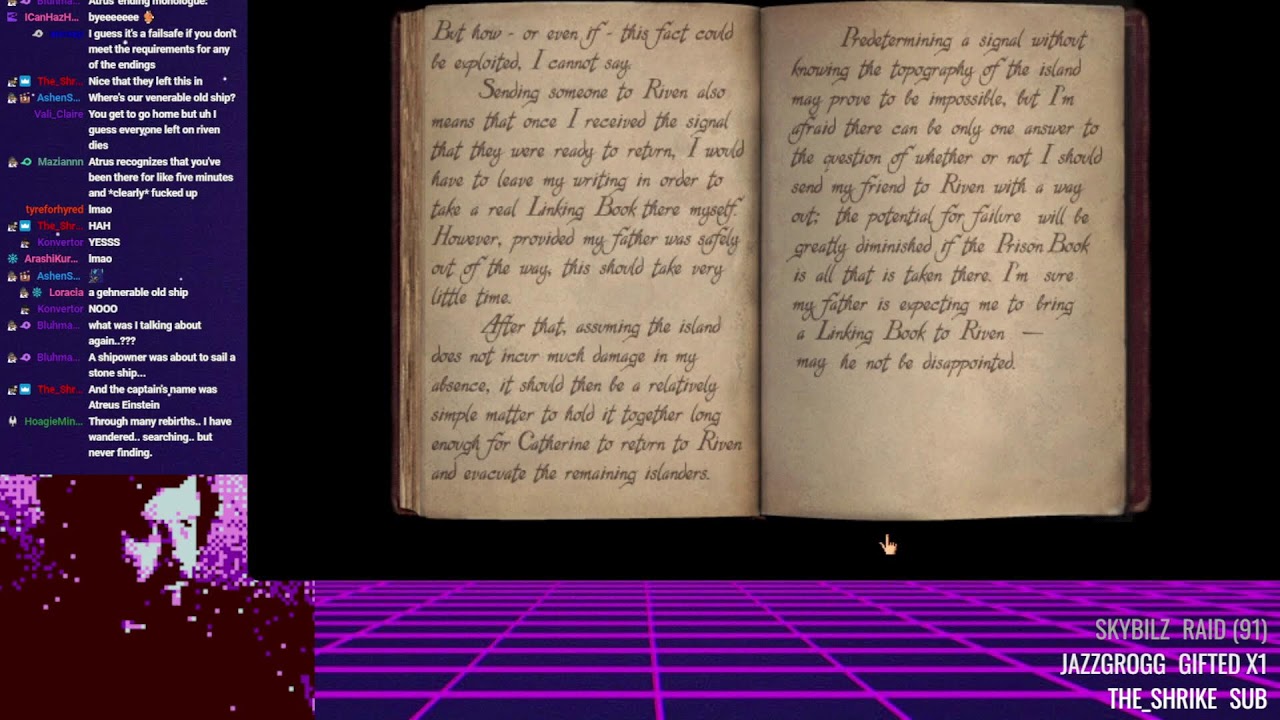 Atrus' ending monologue:
ICanHazH... byeeeeee
I guess it's a failsafe if you don't
meet the requirements for any
of the endings
The_Shr... Nice that they left this in
AshenS... Where's our venerable old ship?
Vali_Claire You get to go home but uh I
guess everyone left on riven
dies
Maziannn Atrus recognizes that you've
been there for like five minutes
and *clearly* fucked up
tyreforhyred lmao
The_Shr... HAH
Konvertor YESSS
ArashiKur... lmao
AshenS...
Loracia a gehnerable old ship
Konvertor NOOO
Bluhma... what was I talking about
again..???
Bluhma... A shipowner was about to sail a
stone ship...
The_Shr... And the captain's name was
Atreus Einstein
HoagieMin... Through many rebirths.. I have
wandered.. searching.. but
never finding.
But how - or even if - this fact could
be exploited, I cannot say.
Sending someone to Riven also
means that once I received the signal
that they were ready to return, I would
have to leave my writing in order to
take a real Linking Book there myself.
However, provided my father was safely
out of the way, this should take very
little time.
After that, assuming the island
does not incur much damage in my
absence, it should then be a relatively
simple matter to hold it together long
enough for Catherine to return to Riven
and evacuate the remaining islanders.
Predetermining a signal without
knowing the topography of the island
may prove to be impossible, but I'm
afraid there can be only one answer to
the question of whether or not I should
send my friend to Riven with a way
out; the potential for failure will be
greatly diminished if the Prison Book
is all that is taken there. I'm sure
my father is expecting me to bring
a Linking Book to Riven —
may he not be disappointed.
SKYBILZ RAID (91)
JAZZGROGG GIFTED X1
THE_SHRIKE SUB